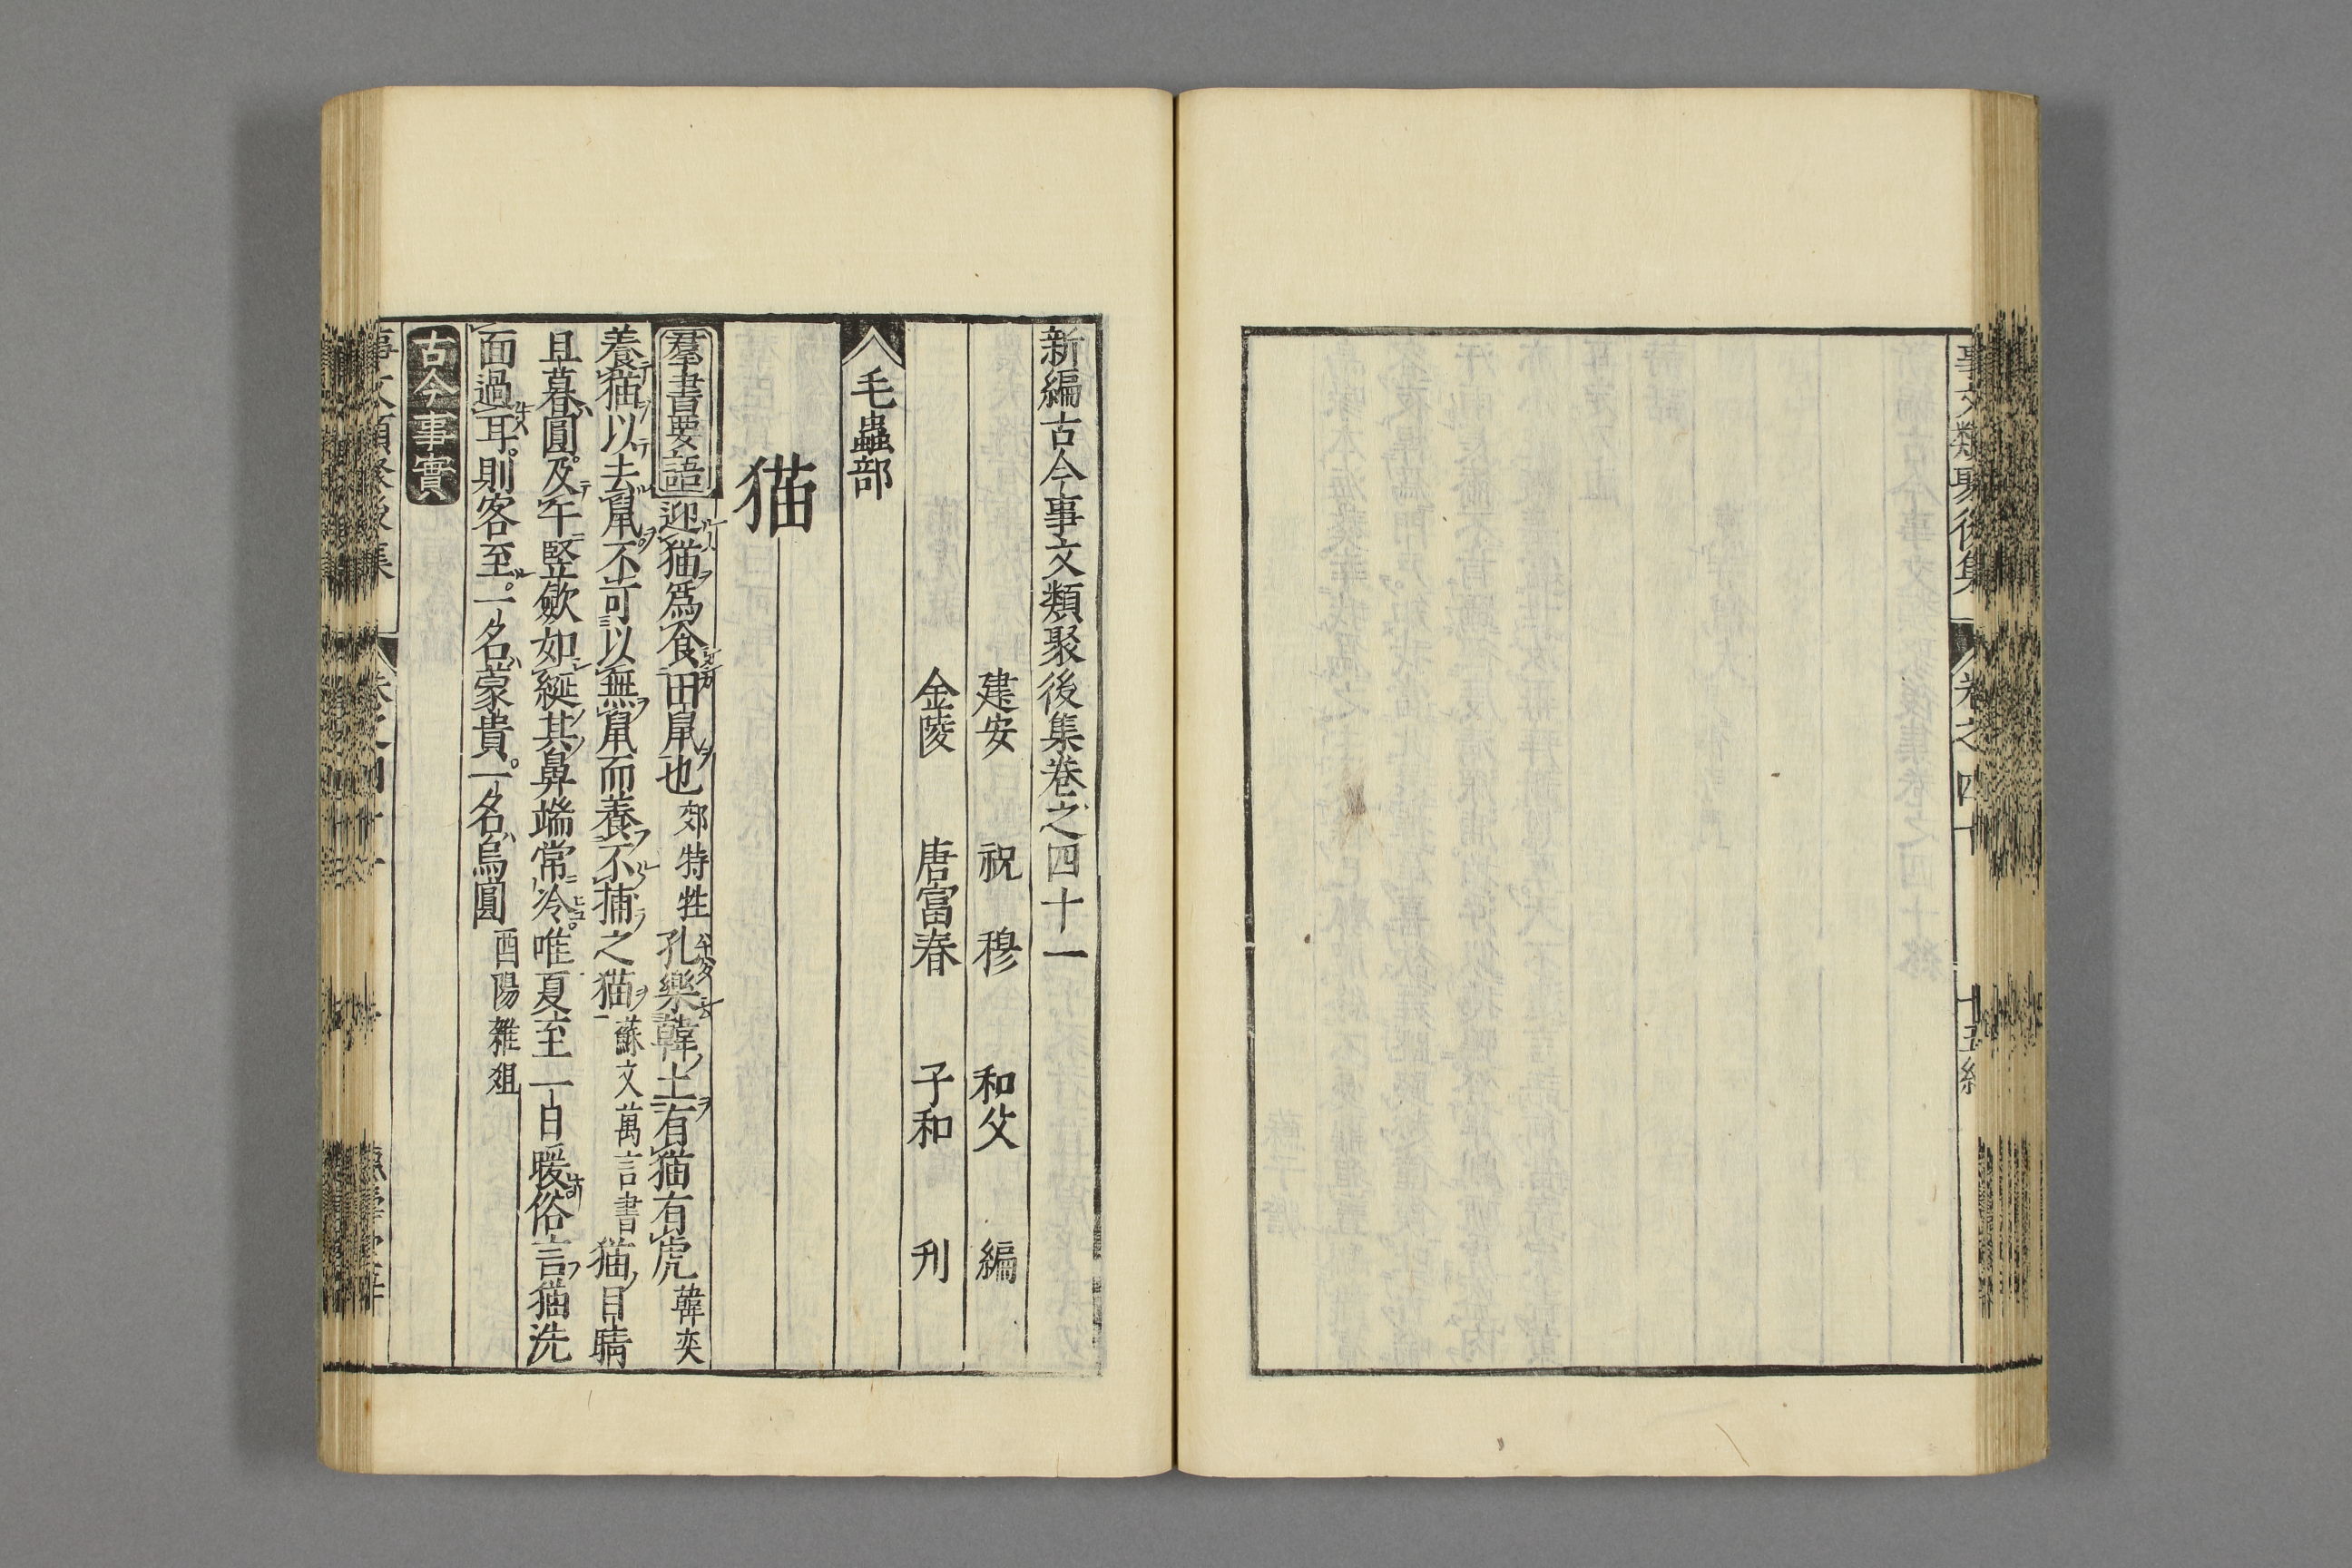 事文類聚後集
卷之四十
新編古今事文類聚後集卷之四十一
建安 祝穆 和父 編
金陵 唐富春 子和 刋
毛蟲部
猫
羣書要語 迎猫爲食田鼠也 郊特牲 孔樂韓土有猫有虎 韓奕
養猫以去鼠不可以無鼠而養不捕之猫 蘇文萬言書 猫目睛
旦暮圓及午竪斂如綖其鼻端常冷唯夏至一日暖俗言猫洗
面過耳則客至一名蒙貴一名烏圓 酉陽雜俎
古今事實